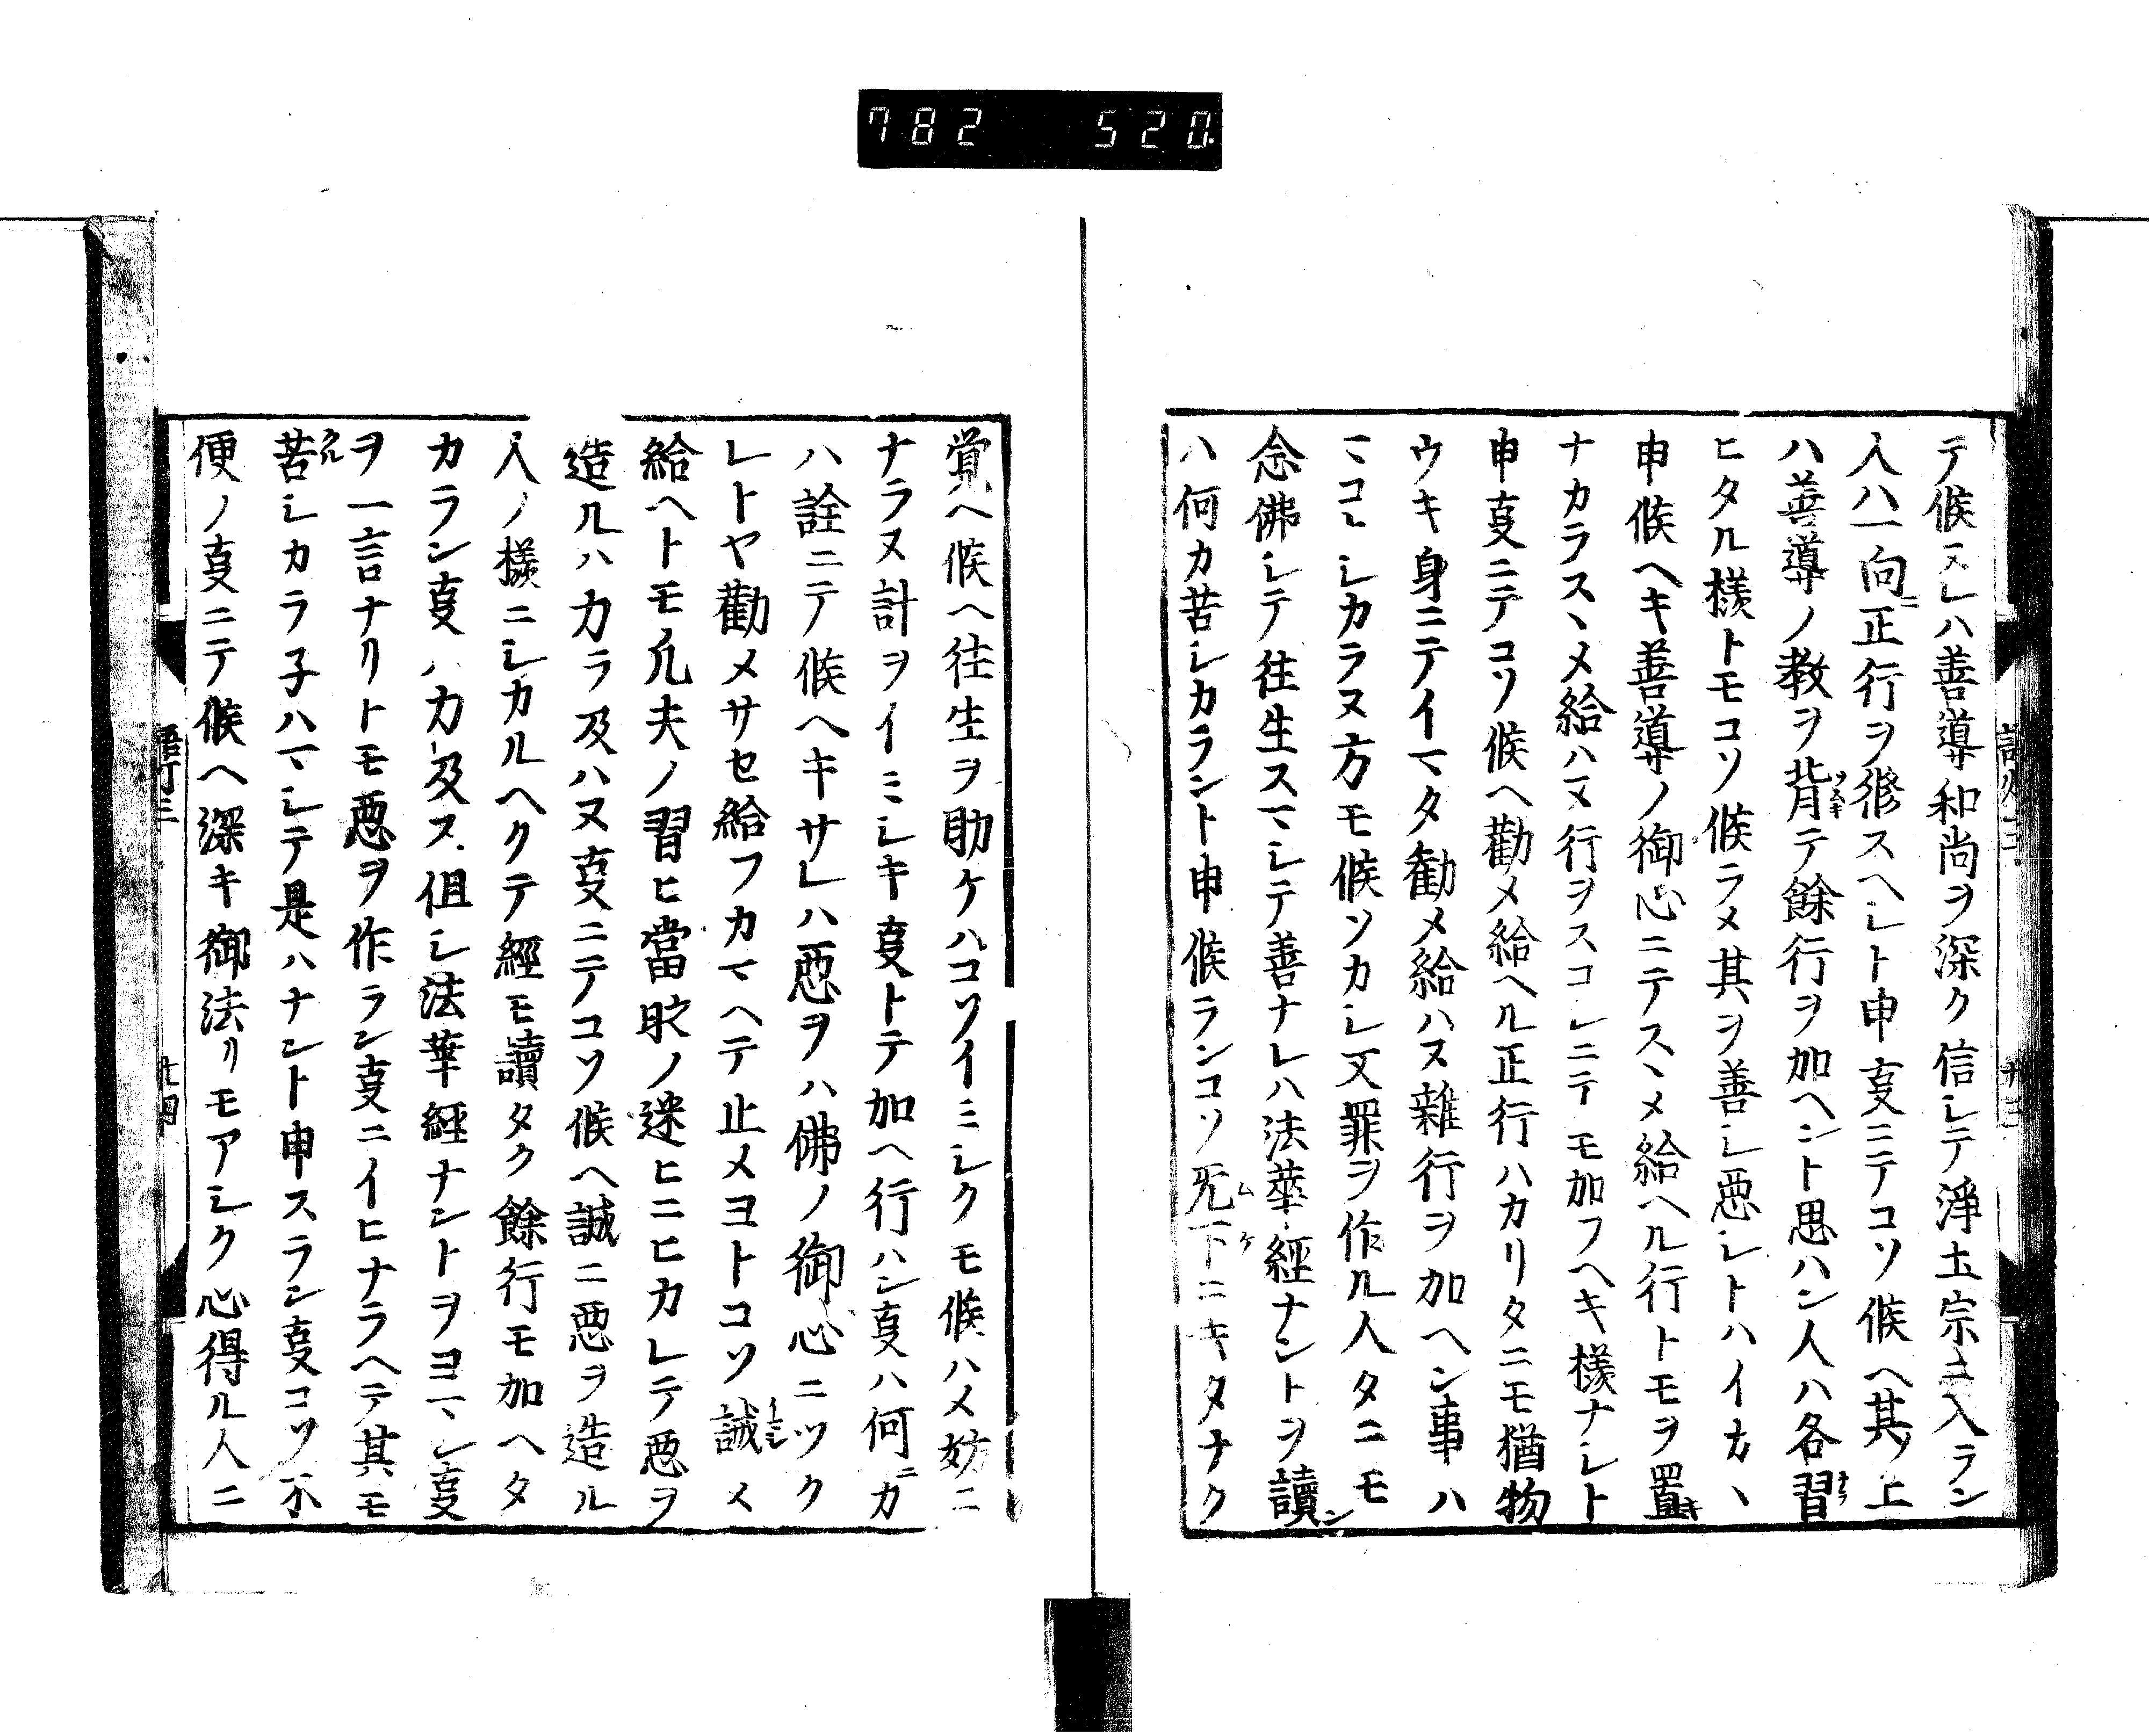 782 520
テ候ヌレハ善導和尚ヲ深ク信シテ淨土宗ニ入ラン
人ハ一向ニ正行ヲ修スヘシト申叓ニテコソ候ヘ其ノ上
ハ善導ノ教ヲ背テ餘行ヲ加ヘント思ハン人ハ各習
ヒタル樣トモコソ候ラメ其ヲ善シ悪シトハイカヽ
申候ヘキ善導ノ御心ニテスヽメ給ヘル行トモヲ置キ
ナカラスヽメ給ハヌ行ヲスコシニテモ加フヘキ樣ナシト
申叓ニテコソ候ヘ勸メ給ヘル正行ハカリタニモ猶物
ウキ身ニテイマタ勸メ給ハヌ雜行ヲ加ヘン事ハ
マコトシカラヌ方モ候ソカシ又罪ヲ作ル人タニモ
念佛シテ往生スマシテ善ナレハ法華經ナントヲ讀ン
ハ何カ苦シカラント申候ランコソ无下ニキタナク
覚ヘ候ヘ往生ヲ助ケハコソイミシクモ候ハメ妨ニ
ナラヌ計ヲイミシキ叓トテ加ヘ行ハン叓ハ何カ
ハ詮ニテ候ヘキサレハ悪ヲハ佛ノ御心ニツク
レトヤ勸メサセ給フカマヘテ止メヨトコソ誡メ
給ヘトモ凡夫ノ習ヒ當時ノ迷ヒニヒカレテ悪ヲ
造ルハカラ及ハヌ叓ニテコソ候ヘ誠ニ悪ヲ造ル
人ノ樣ニシカルヘクテ經モ讀タク餘行モ加ヘタ
カラン叓ハカ及ス但シ法華經ナントヲヨマン叓
ヲ一言ナリトモ悪ヲ作ラン叓ニイヒナラヘテ其モ
苦シカラ子ハマシテ是ハナント申スラン叓コソ不
便ノ叓ニテ候ヘ深キ御法リモアシク心得ル人ニ